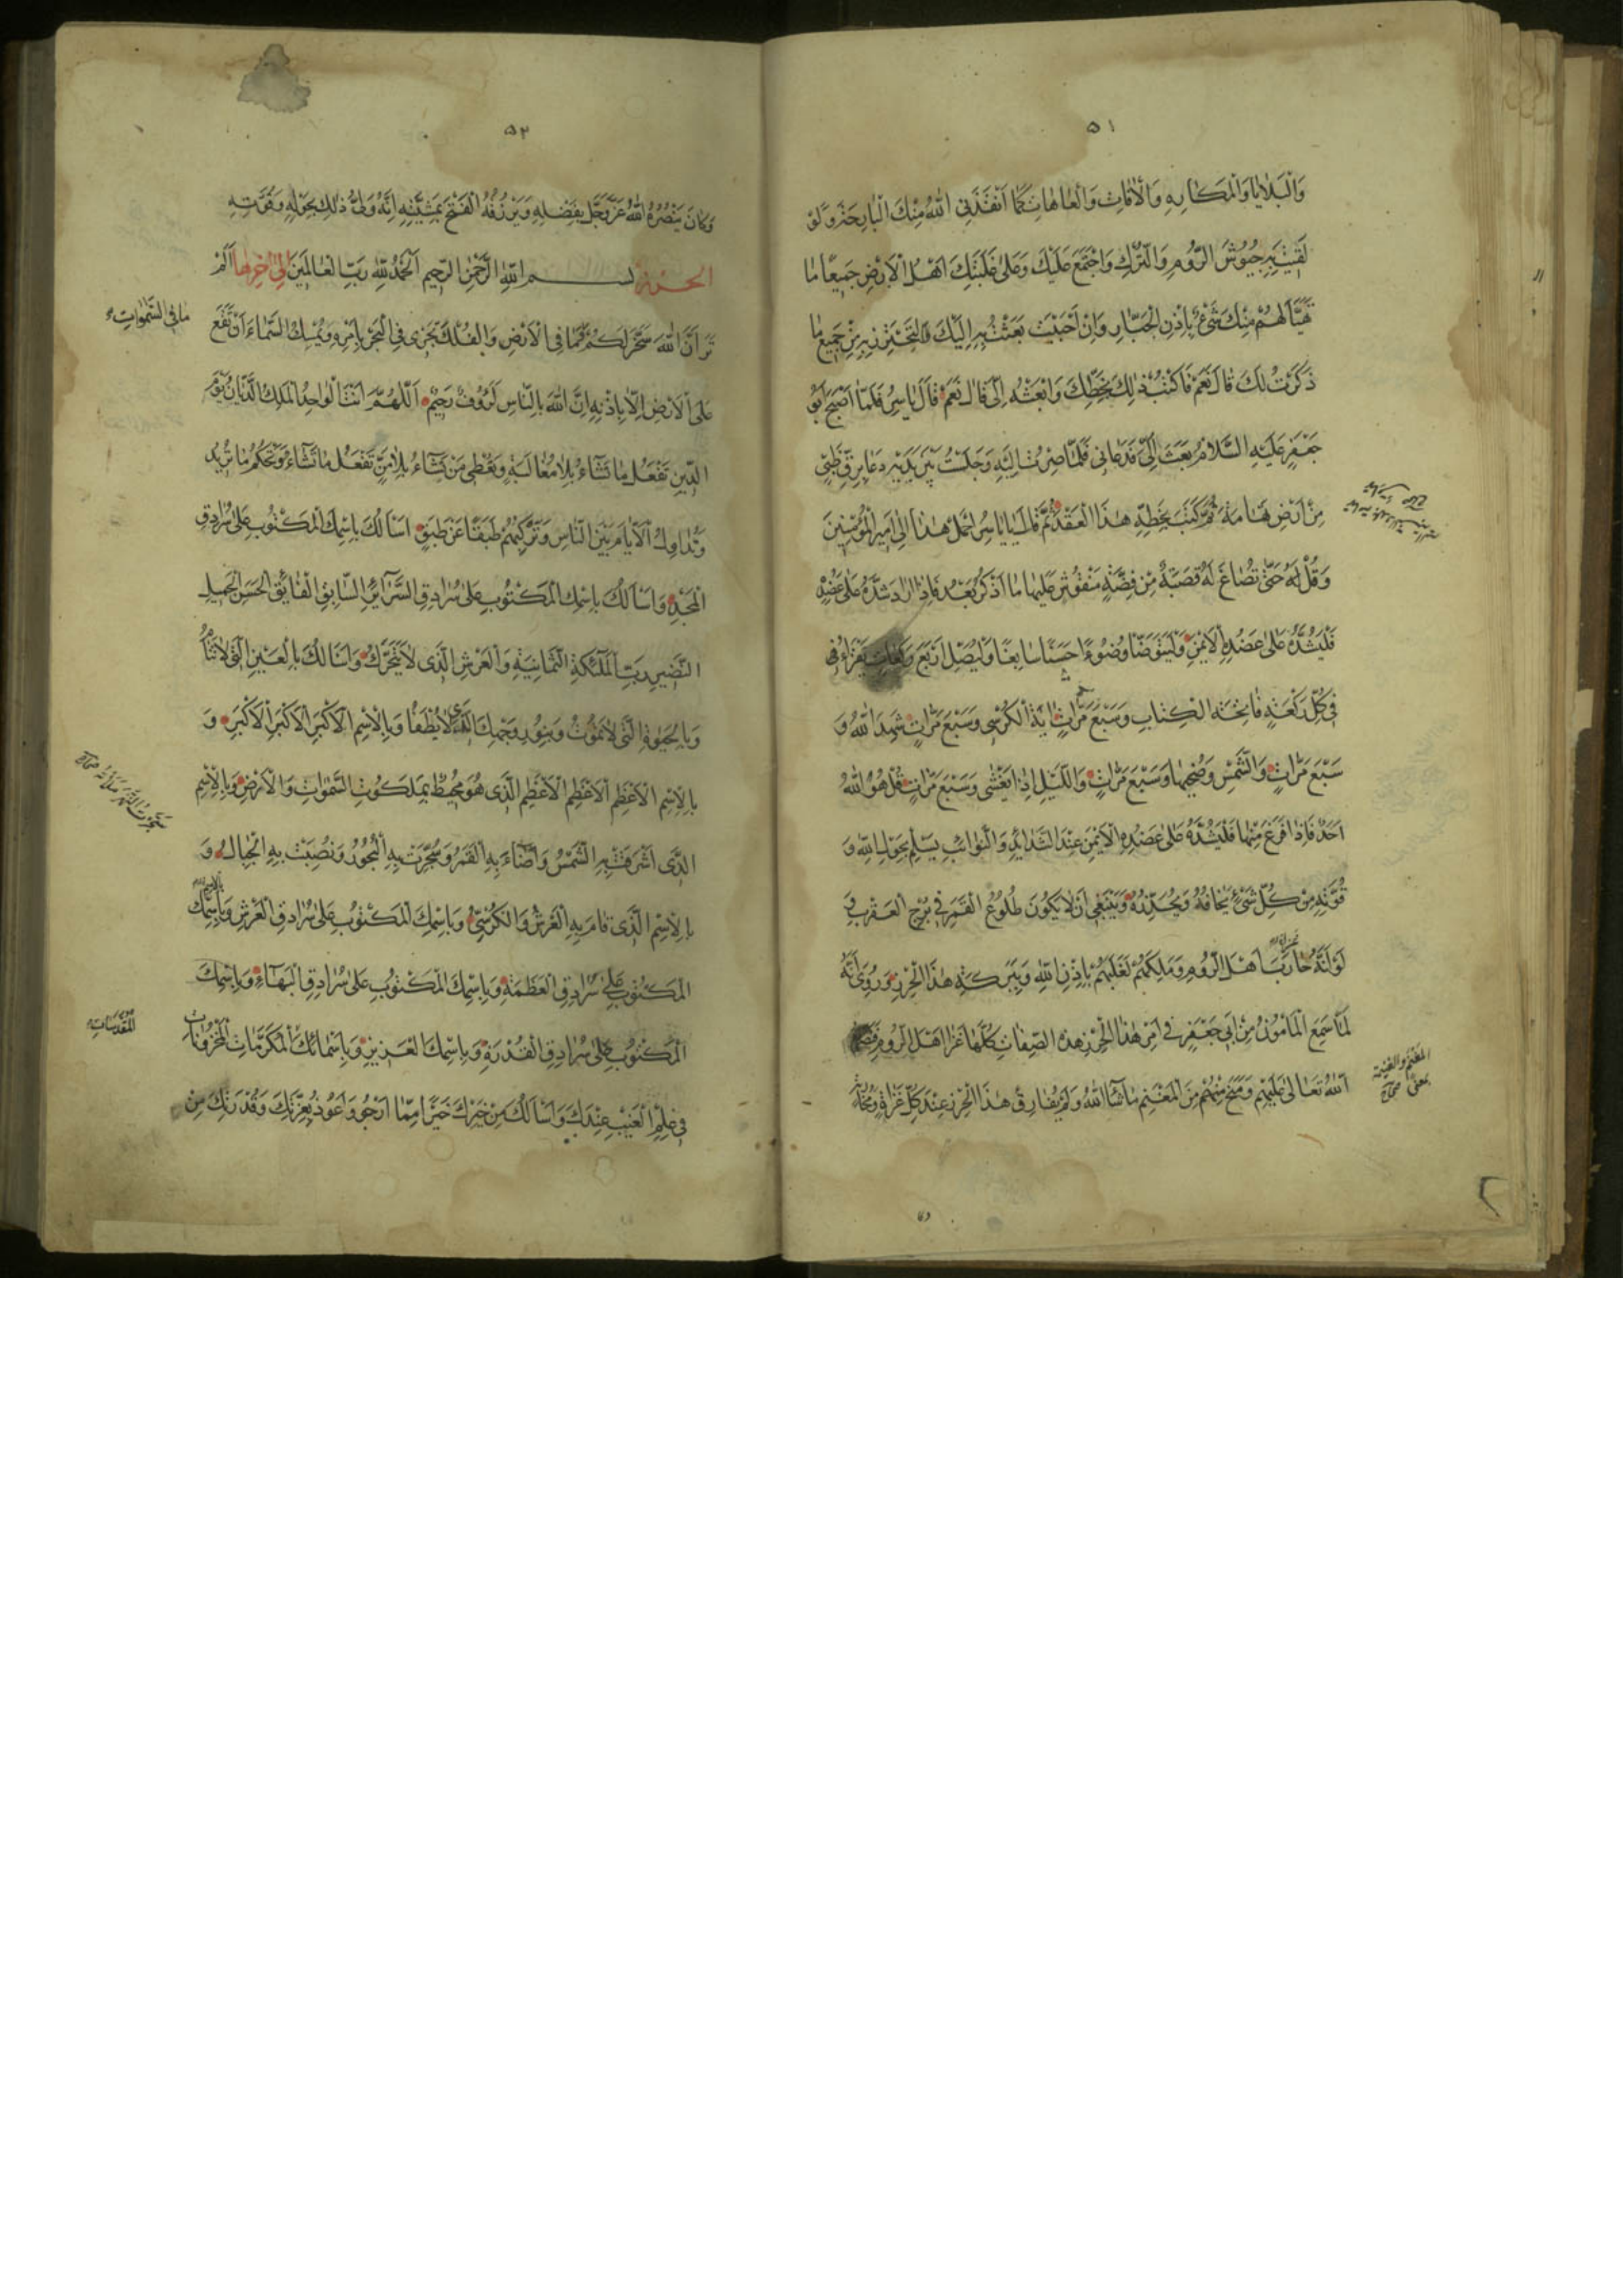 ٥١
وَالْبَلَايَا وَالْمَكَارِهِ وَالْاٰفَاتِ وَالْعَاهَاتِ كَمَا اَنْقَذَنِى اللّٰهُ مِنْكَ الْبَارِحَةَ وَلَوْ
لَقِيتَ بِهِ جُيُوشَ الرُّومِ وَالتُّرْكِ وَاجْتَمَعَ عَلَيْكَ وَعَلٰى غَلَبَتِكَ اَهْلُ الْاَرْضِ جَمِيعًا مَا
تَهَيَّأَ لَهُمْ مِنْكَ شَىْءٌ بِاِذْنِ الْجَبَّارِ وَاِنْ اَحْبَبْتَ بَعَثْتُ بِهِ اِلَيْكَ لِتَحْتَرِزَ بِهِ مِنْ جَمِيعِ مَا
ذَكَرْتُ لَكَ قَالَ نَعَمْ فَاكْتُبْ ذٰلِكَ بِخَطِّكَ وَابْعَثْهُ اِلَىَّ قَالَ نَعَمْ قَالَ يَاسِرُ فَلَمَّا اَصْبَحَ اَبُو
جَعْفَرٍ عَلَيْهِ السَّلَامُ بَعَثَ اِلَىَّ فَدَعَانِى فَلَمَّا صِرْتُ اِلَيْهِ وَجَلَسْتُ بَيْنَ يَدَيْهِ دَعَا بِرَقِّ ظَبْىٍ
مِنْ اَرْضِ تِهَامَةَ ثُمَّ كَتَبَ بِخَطِّهِ هٰذَا الْعَقْدَ ثُمَّ قَالَ يَا يَاسِرُ احْمِلْ هٰذَا اِلٰى اَمِيرِ الْمُؤْمِنِينَ
وَقُلْ لَهُ حَتّٰى تُصَاغَ لَهُ قَصَبَةٌ مِنْ فِضَّةٍ مَنْقُوشٌ عَلَيْهَا مَا اَذْكُرُ بَعْدُ فَاِذَا اَرَادَ شَدَّهُ عَلٰى عَضُدِهِ
فَلْيَشُدَّهُ عَلٰى عَضُدِهِ الْاَيْمَنِ وَلْيَتَوَضَّأْ وُضُوءًا حَسَنًا سَابِغًا وَلْيُصَلِّ اَرْبَعَ رَكَعَاتٍ يَقْرَأُ فِى
فِى كُلِّ رَكْعَةٍ فَاتِحَةَ الْكِتَابِ وَسَبْعَ مَرَّاتٍ اٰيَةَ الْكُرْسِى وَسَبْعَ مَرَّاتٍ شَهِدَ اللّٰهُ وَ
سَبْعَ مَرَّاتٍ وَالشَّمْسِ وَضُحٰيهَا وَسَبْعَ مَرَّاتٍ وَاللَّيْلِ اِذَا يَغْشٰى وَسَبْعَ مَرَّاتٍ قُلْ هُوَ اللّٰهُ
اَحَدٌ فَاِذَا فَرَغَ مِنْهَا فَلْيَشُدَّهُ عَلٰى عَضُدِهِ الْاَيْمَنِ عِنْدَ الشَّدَائِدِ وَالنَّوَائِبِ يَسْلَمُ بِحَوْلِ اللّٰهِ وَ
قُوَّتِهِ مِنْ كُلِّ شَىْءٍ يَخَافُهُ وَيَحْذَرُهُ وَيَنْبَغِى اَنْ لَا يَكُونَ طُلُوعُ الْقَمَرِ فِى بُرْجِ الْعَقْرَبِ وَ
لَوْ اَنَّهُ حَارَبَ اَهْلَ الرُّومِ وَمَلِكَهُمْ لَغَلَبَهُمْ بِاِذْنِ اللّٰهِ وَبَرَكَةِ هٰذَا الْحِرْزِ وَرُوِىَ اَنَّهُ
لَمَّا سَمِعَ الْمَأْمُونُ مِنْ اَبِى جَعْفَرٍ فِى اَمْرِ هٰذَا الْحِرْزِ هٰذِهِ الصِّفَاتِ كُلَّهَا غَزَا اَهْلَ الرُّومِ فَنَصَرَهُ
اللّٰهُ تَعَالٰى عَلَيْهِمْ وَمَنَحَ مِنْهُمْ مِنَ الْمَغْنَمِ مَا شَاءَ اللّٰهُ وَلَمْ يُفَارِقْ هٰذَا الْحِرْزَ عِنْدَ كُلِّ غَزَاةٍ وَمُحَارَبَةٍ
المغنم والغنيمة
بمعنى صحاح
٥٢
وَكَانَ يَنْصُرُهُ اللّٰهُ عَزَّ وَجَلَّ بِفَضْلِهِ وَيَرْزُقُهُ الْفَتْحَ بِمَشِيَّتِهِ اِنَّهُ وَلِىُّ ذٰلِكَ بِحَوْلِهِ وَقُوَّتِهِ
الحرز بسم اللّٰهِ الرَّحْمٰنِ الرَّحِيمِ اَلْحَمْدُ لِلّٰهِ رَبِّ الْعَالَمِينَ اِلٰى اٰخِرِهَا اَلَمْ
تَرَ اَنَّ اللّٰهَ سَخَّرَ لَكُمْ مَا فِى الْاَرْضِ وَالْفُلْكَ تَجْرِى فِى الْبَحْرِ بِاَمْرِهِ وَيُمْسِكُ السَّمَاءَ اَنْ تَقَعَ
مَا فِى السَّمٰوَاتِ
عَلَى الْاَرْضِ اِلَّا بِاِذْنِهِ اِنَّ اللّٰهَ بِالنَّاسِ لَرَؤُفٌ رَحِيمٌ اَللّٰهُمَّ اَنْتَ الْوَاحِدُ الْمَلِكُ الدَّيَّانُ يَوْمَ
الدِّينِ تَفْعَلُ مَا تَشَاءُ بِلَا مُغَالَبَةٍ وَتُعْطِى مَنْ تَشَاءُ بِلَا مَنٍّ تَفْعَلُ مَا تَشَاءُ وَتَحْكُمُ مَا تُرِيدُ
وَتُدَاوِلُ الْاَيَّامَ بَيْنَ النَّاسِ وَتُرَكِّبُهُمْ طَبَقًا عَنْ طَبَقٍ اَسْاَلُكَ بِاسْمِكَ الْمَكْتُوبِ عَلٰى سُرَادِقِ
الْمَجْدِ وَاَسْاَلُكَ بِاسْمِكَ الْمَكْتُوبِ عَلٰى سُرَادِقِ السَّرَائِرِ السَّابِقِ الْفَائِقِ الْحَسَنِ الْجَمِيلِ
النَّضِيرِ رَبِّ الْمَلٰئِكَةِ الثَّمَانِيَةِ وَالْعَرْشِ الَّذِى لَا يَتَحَرَّكُ وَاَسْاَلُكَ بِالْعَيْنِ الَّتِى لَا تَنَامُ
وَبِالْحَيٰوةِ الَّتِى لَا تَمُوتُ وَبِنُورِ وَجْهِكَ الَّذِى لَا يُطْفَأُ وَبِالْاِسْمِ الْاَكْبَرِ الْاَكْبَرِ الْاَكْبَرِ وَ
بِالْاِسْمِ الْاَعْظَمِ الْاَعْظَمِ الْاَعْظَمِ الَّذِى هُوَ مُحِيطٌ بِمَلَكُوتِ السَّمٰوَاتِ وَالْاَرْضِ وَبِالْاِسْمِ
الَّذِى اَشْرَقَتْ بِهِ الشَّمْسُ وَاَضَاءَ بِهِ الْقَمَرُ وَسُجِّرَتْ بِهِ الْبُحُورُ وَنُصِبَتْ بِهِ الْجِبَالُ وَ
بِالْاِسْمِ الَّذِى قَامَ بِهِ الْعَرْشُ وَالْكُرْسِىُّ وَبِاسْمِكَ الْمَكْتُوبِ عَلٰى سُرَادِقِ الْعَرْشِ وَبِاسْمِكَ
الْمَكْتُوبِ عَلٰى سُرَادِقِ الْعَظَمَةِ وَبِاسْمِكَ الْمَكْتُوبِ عَلٰى سُرَادِقِ الْبَهَاءِ وَبِاسْمِكَ
الْمَكْتُوبِ عَلٰى سُرَادِقِ الْقُدْرَةِ وَبِاسْمِكَ الْعَزِيزِ وَبِاَسْمَائِكَ الْمُكَرَّمَاتِ الْمَخْزُونَاتِ
الْمُقَدَّسَاتِ
فِى عِلْمِ الْغَيْبِ عِنْدَكَ وَاَسْاَلُكَ مِنْ خَيْرِكَ خَيْرًا مِمَّا اَرْجُو وَاَعُوذُ بِعِزَّتِكَ وَقُدْرَتِكَ مِنْ